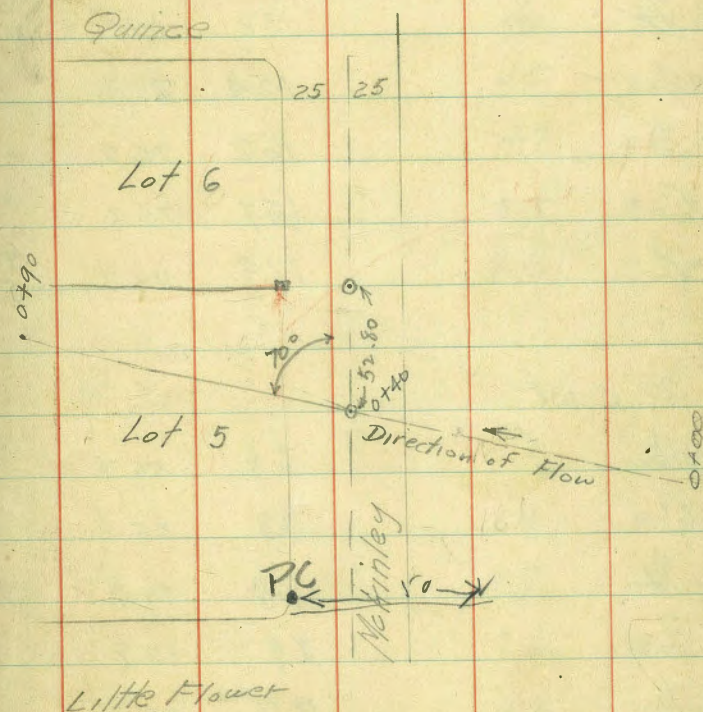 Quince
25 25
Lot 6
0+90
70°
52.80
0+40
Lot 5
Direction of Flow
0+00
McKinley
PC
50
Little Flower